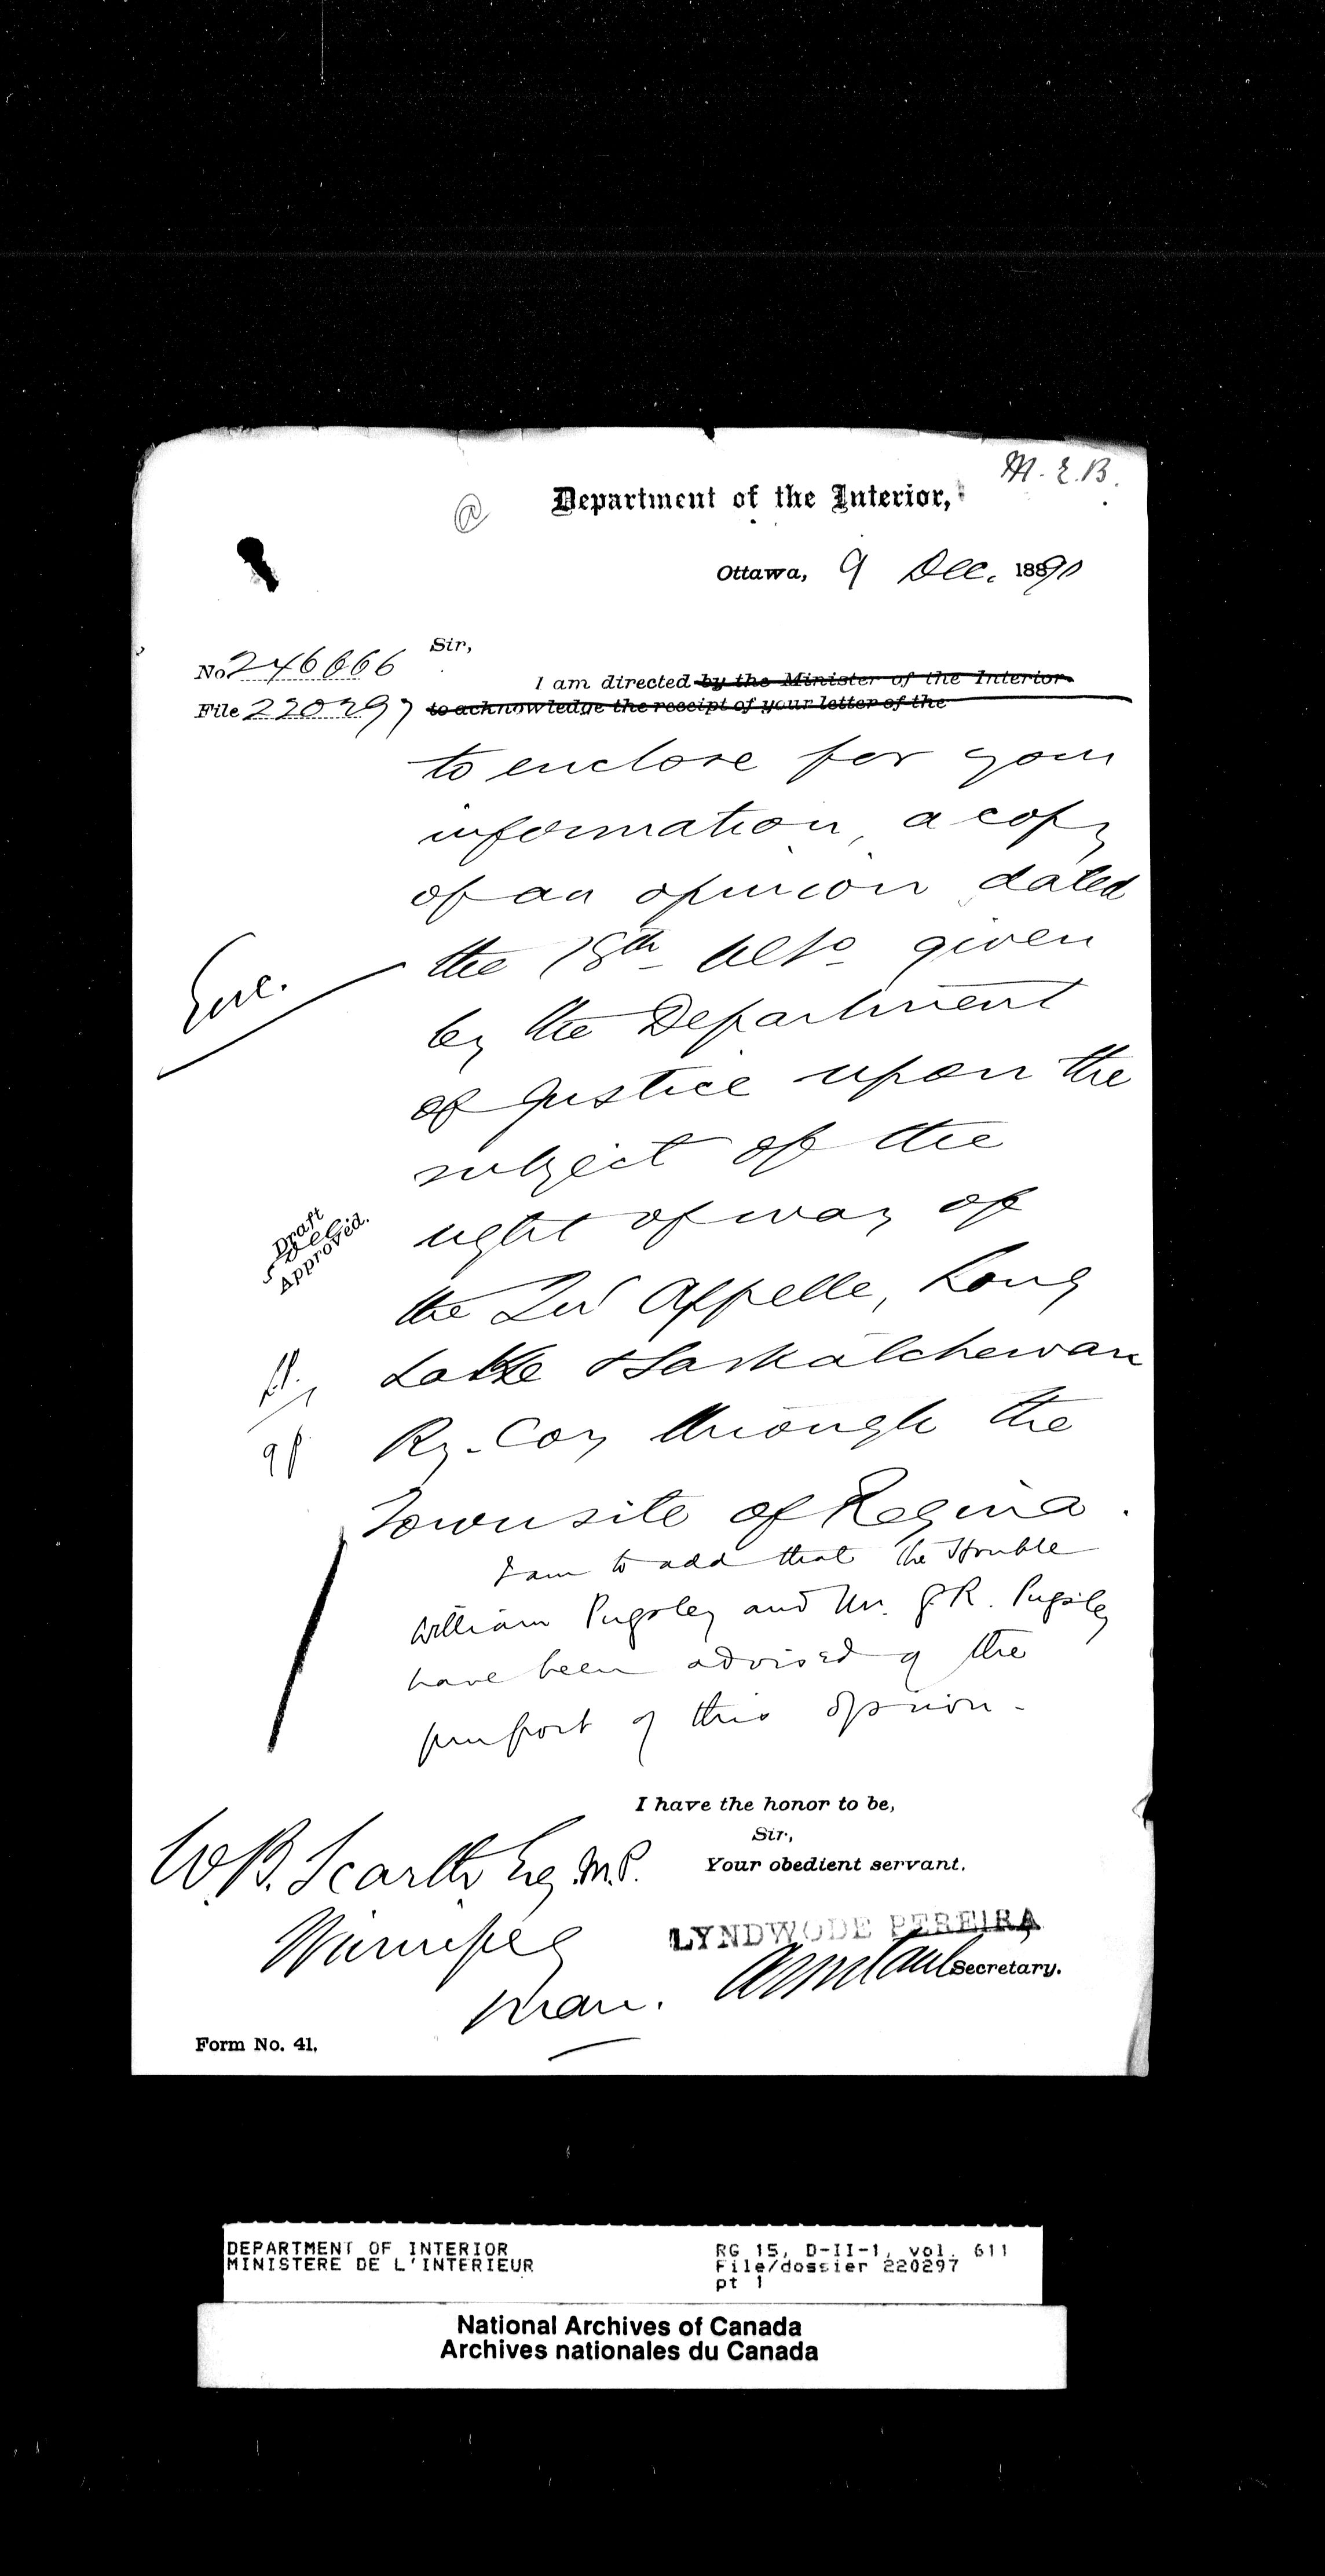 M.E.B.
@
Department of the Interior,
Ottawa, 9 Dec. 1890
No 246666
File 220297
Sir,
I am directed by the Minister of the Interior
to acknowledge the receipt of your letter of the
to enclose for your
information, a copy
of an opinion dated
the 18th ulto given
by the Department
of Justice upon the
subject of the
right of way of
the Qu'Appelle, Long
Lake & Saskatchewan
Ry. Coy through the
Townsite of Regina.
I am to add that the Honble
William Pugsley and Mr. G.R. Pugsley
have been advised of the
purport of this opinion.
Enc.
Draft
5 Dec
Approved.
I have the honor to be,
Sir,
Your obedient servant.
W.B. Scarth Esq. M.P.
Winnipeg
Man.
LYNDWODE PEREIRA
Secretary.
Form No. 41.
DEPARTMENT OF INTERIOR
MINISTERE DE L'INTERIEUR
RG 15, D-II-1, vol. 611
File/dossier 220297
pt 1
National Archives of Canada
Archives nationales du Canada